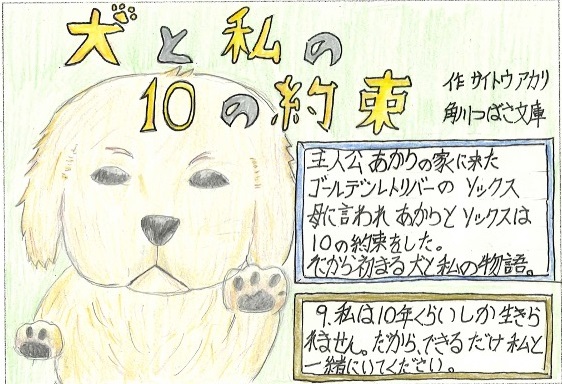 犬と私の
10の約束
作 サイトウアカリ
角川つばさ文庫
主人公あかりの家に来た
ゴールデンレトリバーの ソックス
母に言われ あかりとソックスは
10の約束をした。
だから初まる犬と私の物語。
9.私は10年くらいしか生きら
れません。だから、できるだけ私と
一緒にいてください。